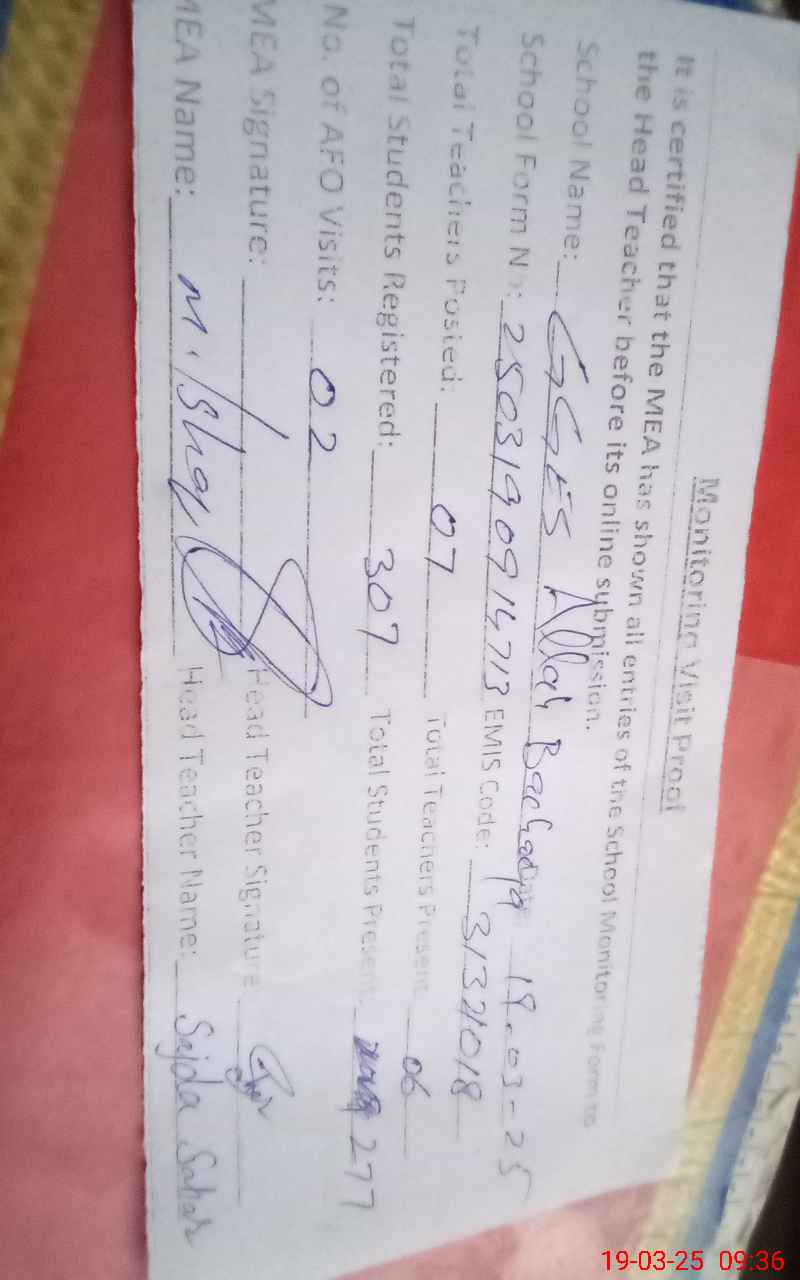 Monitoring Visit Proof
It is certified that the MEA has shown all entries of the School Monitoring Form to
the Head Teacher before its online submission.
School Name: GGES Allah Bachaya 19-03-25
School Form No: 2503190914713 EMIS Code: 31321018
Total Teachers Posted: 07 Total Teachers Present 06
Total Students Registered: 307 Total Students Present: 277
No. of AFO Visits: 02
MEA Signature: Head Teacher Signature
MEA Name: M. Ishaq Head Teacher Name: Sajda Sahar
19-03-25 09:36